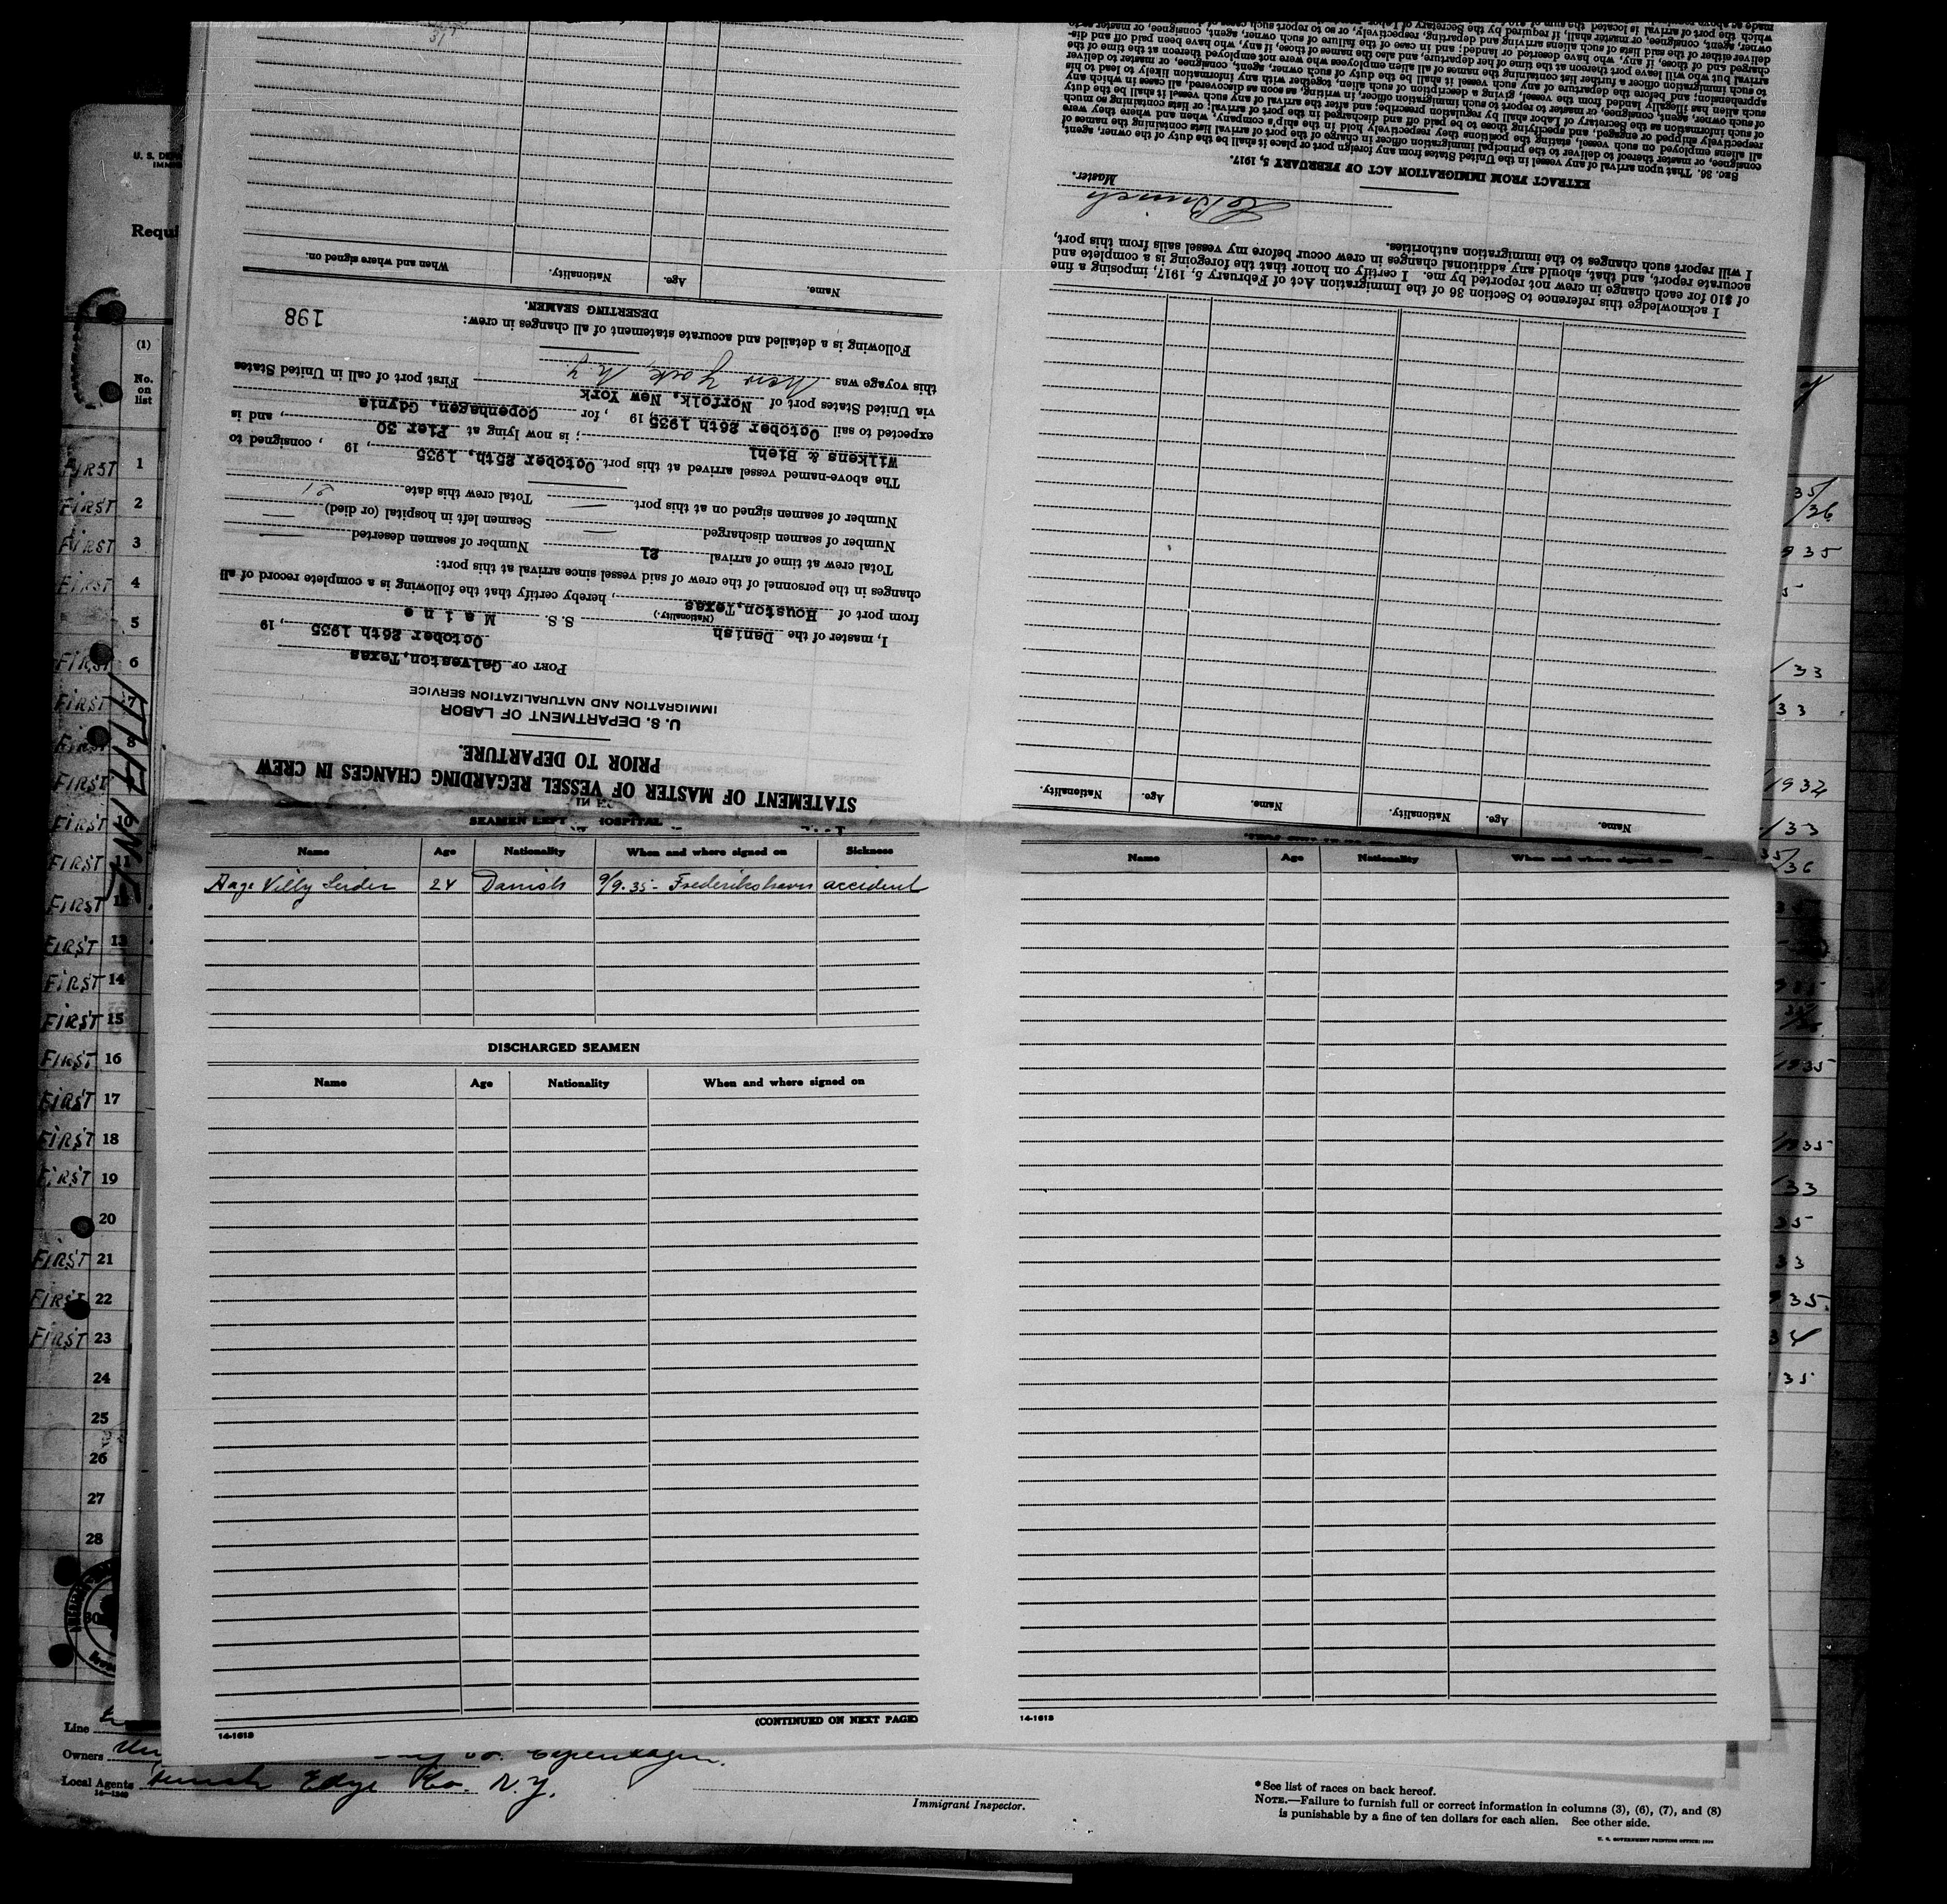 STATEMENT OF MASTER OF VESSEL REGARDING CHANGES IN CREW
PRIOR TO DEPARTURE.
U. S. DEPARTMENT OF LABOR
IMMIGRATION AND NATURALIZATION SERVICE
PORT OF Galveston, Texas
October 26th 1935, 19
I, master of the Danish S. S. Maine
(Nationality.)
from port of Houston, Texas, hereby certify that the following is a complete record of all
changes in the personnel of the crew of said vessel since arrival at this port:
Total crew at time of arrival 21 Number of seamen deserted
Number of seamen discharged Seamen left in hospital (or died)
Number of seamen signed on at this port Total crew this date 21
The above-named vessel arrived at this port October 25th, 1935, 19 , consigned to
Wilkens & Biehl ; is now lying at Pier 30, and is
expected to sail October 26th 1935, 19 , for Copenhagen, Gdynia
via United States port of Norfolk, New York First port of call in United States
this voyage was New York N Y
Following is a detailed and accurate statement of all changes in crew:
198
DESERTING SEAMEN.
Name. Age. Nationality. When and where signed on.
Name. Age. Nationality. Name. Age. Nationality.
I acknowledge this reference to Section 36 of the Immigration Act of February 5, 1917, imposing a fine
of $10 for each change in crew not reported by me. I certify on honor that the foregoing is a complete and
accurate report, and that, should any additional changes in crew occur before my vessel sails from this port,
I will report such changes to the immigration authorities.
Master.
EXTRACT FROM IMMIGRATION ACT OF FEBRUARY 5, 1917.
SEC. 36. That upon arrival of any vessel in the United States from any foreign port or place it shall be the duty of the owner, agent,
consignee, or master thereof to deliver to the principal immigration officer in charge of the port of arrival lists containing the names of
all aliens employed on such vessel, stating the positions they respectively hold in the ship's company, when and where they were
respectively shipped or engaged, and specifying those to be paid off and discharged in the port of arrival; or lists containing so much
of such information as the Secretary of Labor shall by regulation prescribe; and after the arrival of any such vessel it shall be the duty
of such owner, agent, consignee, or master to report to such immigration officer, in writing, as soon as discovered, all cases in which any
such alien has illegally landed from the vessel, giving a description of such alien, together with any information likely to lead to his
apprehension; and before the departure of any such vessel it shall be the duty of such owner, agent, consignee, or master to deliver
to such immigration officer a further list containing the names of all alien employees who were not employed thereon at the time of the
arrival but who will leave port thereon at the time of her departure, and also the names of those, if any, who have been paid off and dis-
charged and of those, if any, who have deserted or landed; and in case of the failure of such owner, agent, consignee, or master so to
deliver either of the said lists of such aliens arriving and departing, respectively, or so to report such cases
owner, agent, consignee, or master shall, if required by the Secretary of Labor,
which the port of arrival is located the sum of $10
SEAMEN LEFT HOSPITAL
Name Age Nationality When and where signed on Sickness
Aage Villy 24 Danish 9/9-35 - Frederikshavn accident
DISCHARGED SEAMEN
Name Age Nationality When and where signed on
(CONTINUED ON NEXT PAGE)
14-1613
Name Age Nationality When and where signed on
14-1613
Requi
(1)
No.
on
list
FIRST 1
FIRST 2
FIRST 3
FIRST 4
5
FIRST 6
FIRST 7
FIRST 8
FIRST
FIRST 10
FIRST 11
FIRST
FIRST 13
FIRST 14
FIRST 15
FIRST 16
FIRST 17
FIRST 18
FIRST 19
20
FIRST 21
FIRST 22
FIRST 23
24
25
26
27
28
30
Line
Owners Copenhagen.
Local Agents Edye Co. N. Y.
Immigrant Inspector.
*See list of races on back hereof.
NOTE.—Failure to furnish full or correct information in columns (3), (6), (7), and (8)
is punishable by a fine of ten dollars for each alien. See other side.
U. S. GOVERNMENT PRINTING OFFICE